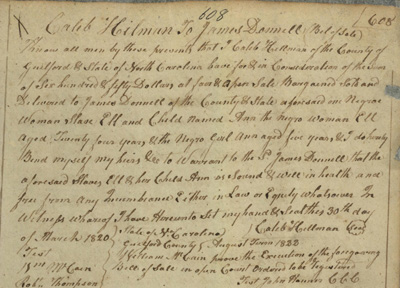 608 608
Caleb Hilman To James Donnell (Bill of Sale)
Know all men by these presents that I Caleb Hillman of the County of
Guilford & State of North Carolina have for & in Consideration of the Sum
of Six hundred & fifty Dollars at Sale Bargained Sold and
Delivered to James Donnell of the County & State aforesaid one Negroe
Woman Slave Ell and Child Named Ann the Negro Woman Ell
aged Twenty four years & the Negroe Girl Ann aged five years, & I do hereby
Bind myself my heirs &c to Warrant to the Sd James Donnell that the
aforesaid Slaves, Ell & her Child Ann is Sound & Well in health and
free from any Incumbrance Either in Law or Equity whatsoever In
Witness whereof I have Hereunto Set my hand & Seal this 30th day
of March 1820 Caleb Hillman Seal
State of N Carolina
Guilford County August Term 1822
Test William McCain prove the Execution of the foregoing
Wm McCain Bill of Sale in open Court Ordered to be Registered
John Thompson Test John Hanner CCC